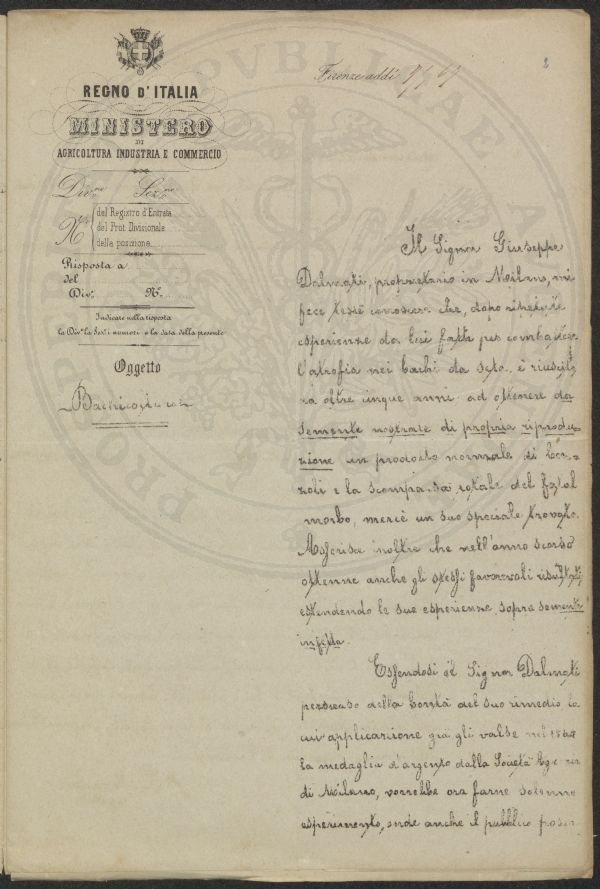 2
Firenze addì 9/4 69
REGNO D'ITALIA
MINISTERO
DI
AGRICOLTURA INDUSTRIA E COMMERCIO
Div.ne Sez.ne
N.° del Registro d'Entrata
del Prot. Divisionale
della posizione
Risposta a
del
Div.e N.°
Indicare nella risposta
la Div.e la Sez.e i numeri e la data della presente
Oggetto
Bachicoltura
Il Signor Giuseppe
Dalmati, proprietario in Milano, mi
fece testè conoscere che, dopo
esperienze da lui fatte per combattere
l'atrofia nei bachi da seta, è riuscito
da oltre cinque anni ad ottenere da
semente nostrale di propria riprodu-
zione un prodotto normale di boz-
zoli e la scomparsa totale del fatal
morbo, mercè un suo speciale trovato.
Asserisce inoltre che nell'anno scorso
ottenne anche gli stessi favorevoli risultati
estendendo le sue esperienze sopra semente
infetta.
Essendosi il Signor Dalmati
persuaso della bontà del suo rimedio la
cui applicazione già gli valse nel 1868
la medaglia d'argento dalla Società Agraria
di Milano, vorrebbe ora farne solenne
esperimento, onde anche il pubblico possa
PVBLICAE
PRO